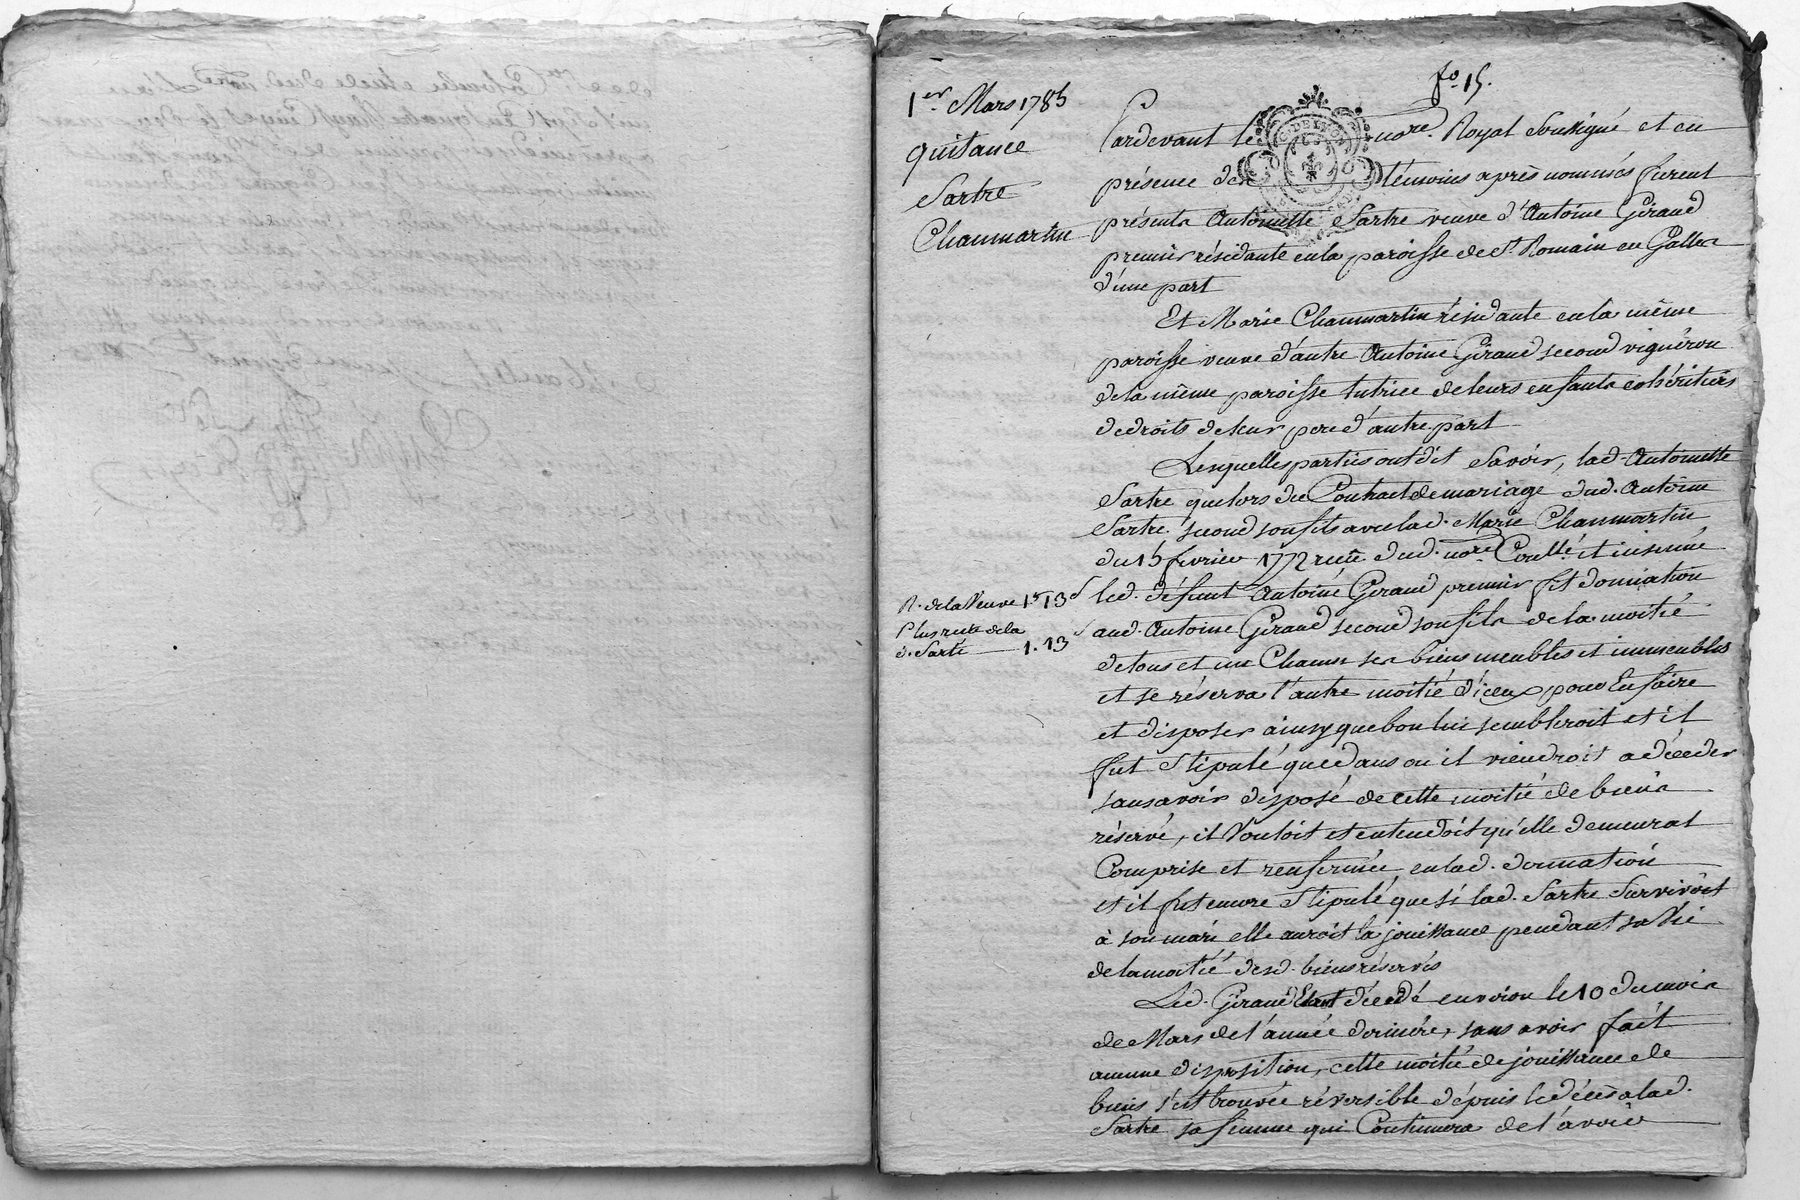 fo. 15.
1er. Mars 1785
quitance
Sartre
Chanmartin
Pardevant le nore. Royal Soussigné et en
présence des témoins après nommés furent
présents Antoinette Sartre veuve d'Antoine Giraud
premier résidante en la paroisse de St Romain en Galles
d'une part
Et Marie Chanmartin résidante en la même
paroisse veuve d'autre Antoine Giraud second vigneron
de la même paroisse tutrice de leurs enfants cohéritiers
de droits de leur pere d'autre part
Lesquelles parties ont dit Savoir, lad. Antoinette
Sartre que lors du Contract de mariage dud. Antoine
Sartre second son fils avec lad. Marie Chanmartin
du 15 fevrier 1772 reçu dud. nore et insinué
led. défunt Antoine Giraud premier fit donnation
aud. Antoine Giraud second son fils de la moitié
de tous et un Chacun ses biens meubles et immeubles
et se réserva l'autre moitié d'iceux pour En faire
et disposer ainsy que bon lui sembleroit et il
fut Stipulé que dans ou il viendroit a déceder
sans avoir disposé de cette moitié de biens
réservé, il Vouloit et entendoit qu'elle demeurat
Comprise et renfermée en lad. donnation
et il fut encore Stipulé que si lad. Sartre Survivoit
à son mari elle auroit la jouissance pendant sa Vie
de la moitié desd. biens réservés
Led. Giraud Etant décedé environ le 10 du mois
de Mars de l'année derniére, sans avoir fait
aucune disposition, cette moitié de jouissance de
biens s'est trouvée réversible dépuis le décès a lad.
Sartre sa femme qui Continuera de l'avoir
R. de la Veuve 1 s 13 d
Plus reçu de la
d. Sartre 1. 13